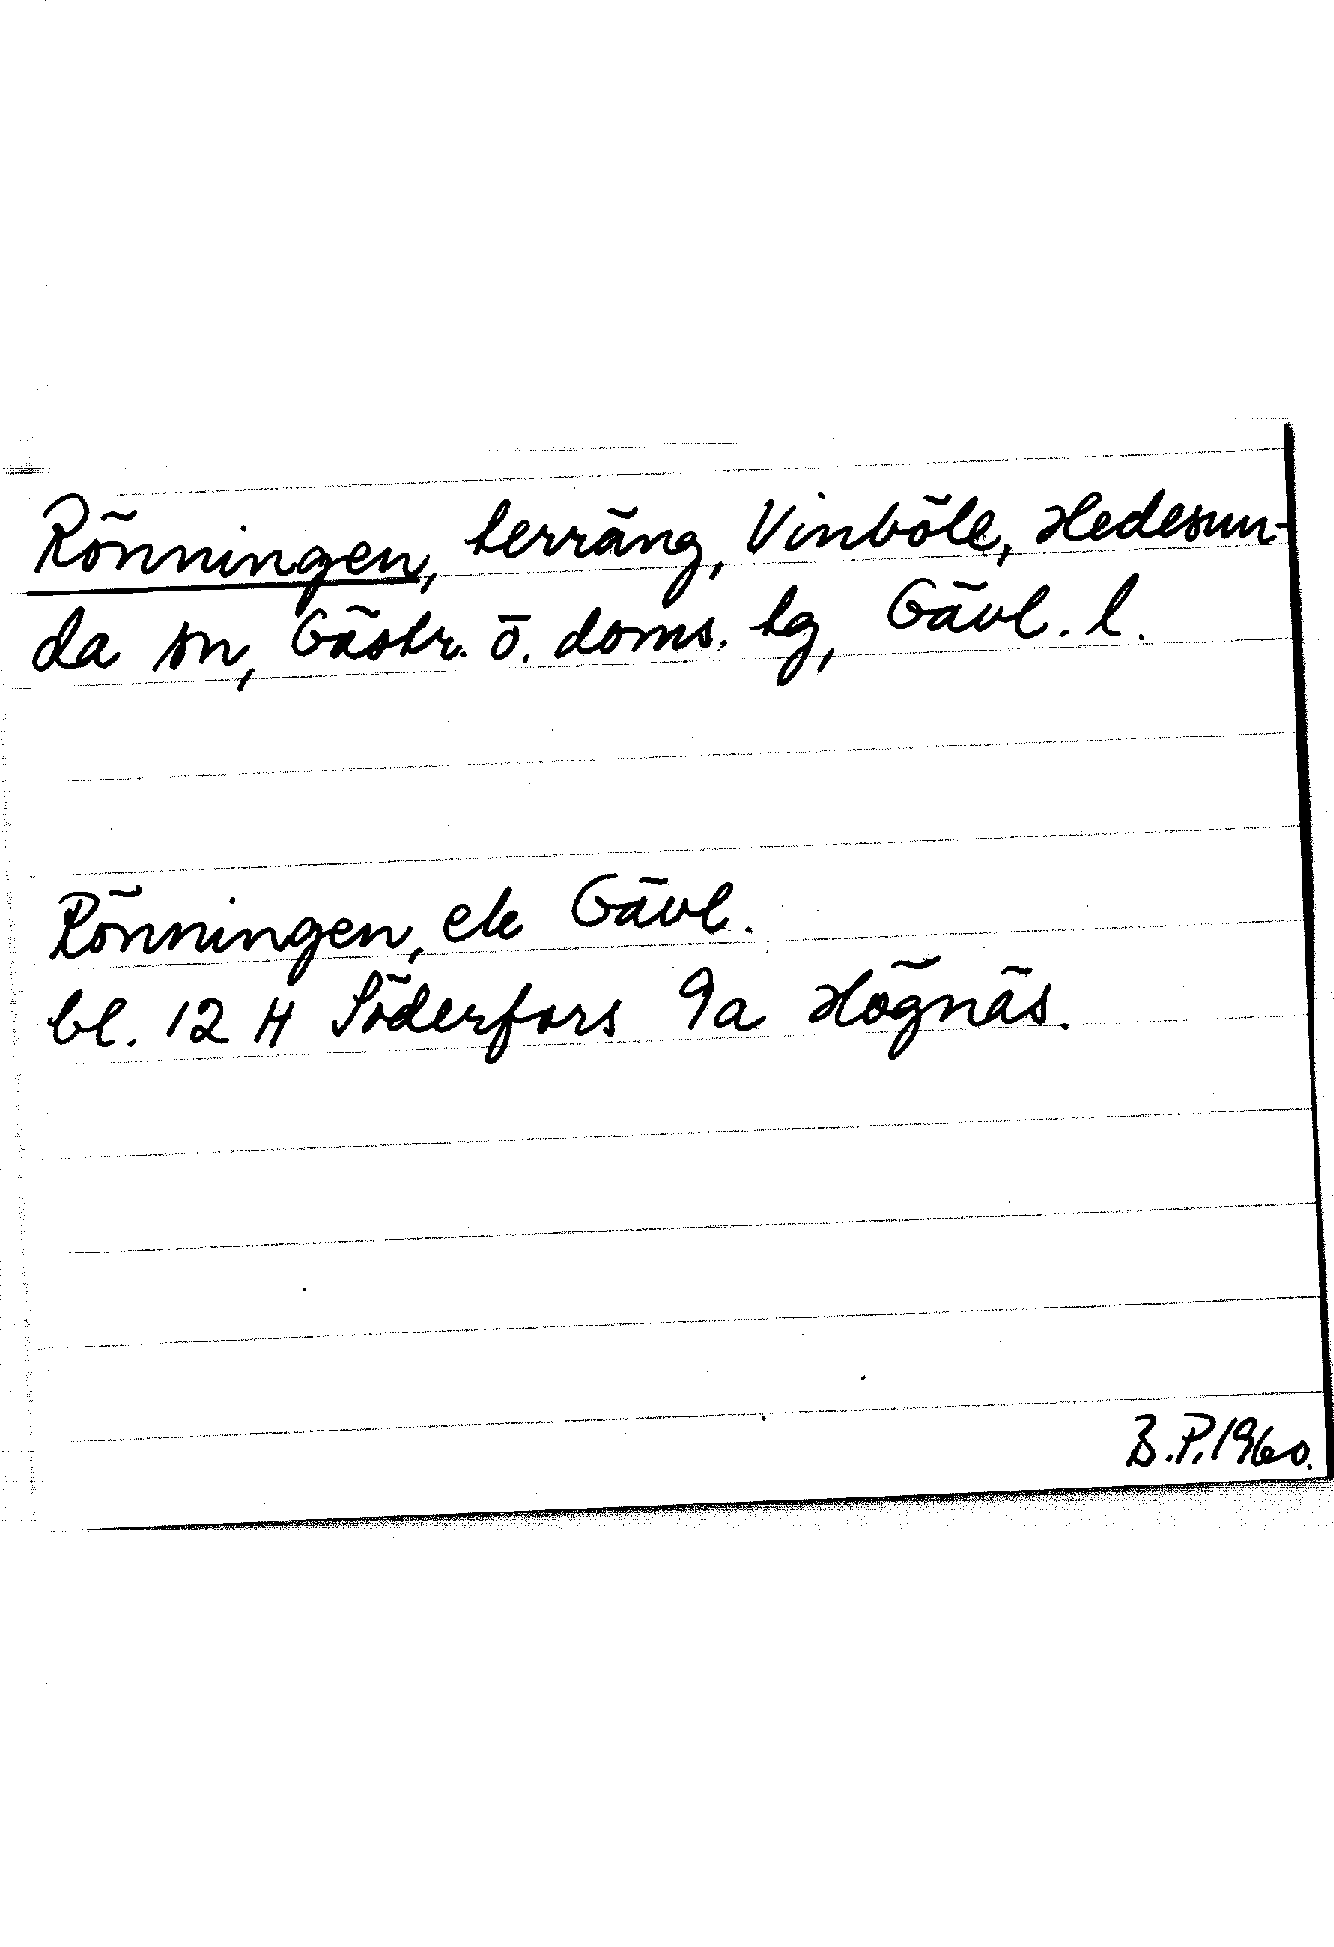 Rönningen, terräng, Vinböle, Hedesun-
da sn, Gästr. ö. doms. tg, Gävl. l.
Rönningen, ek Gävl.
bl. 12 H Söderfors 9a Högnäs.
B.P. 1960.